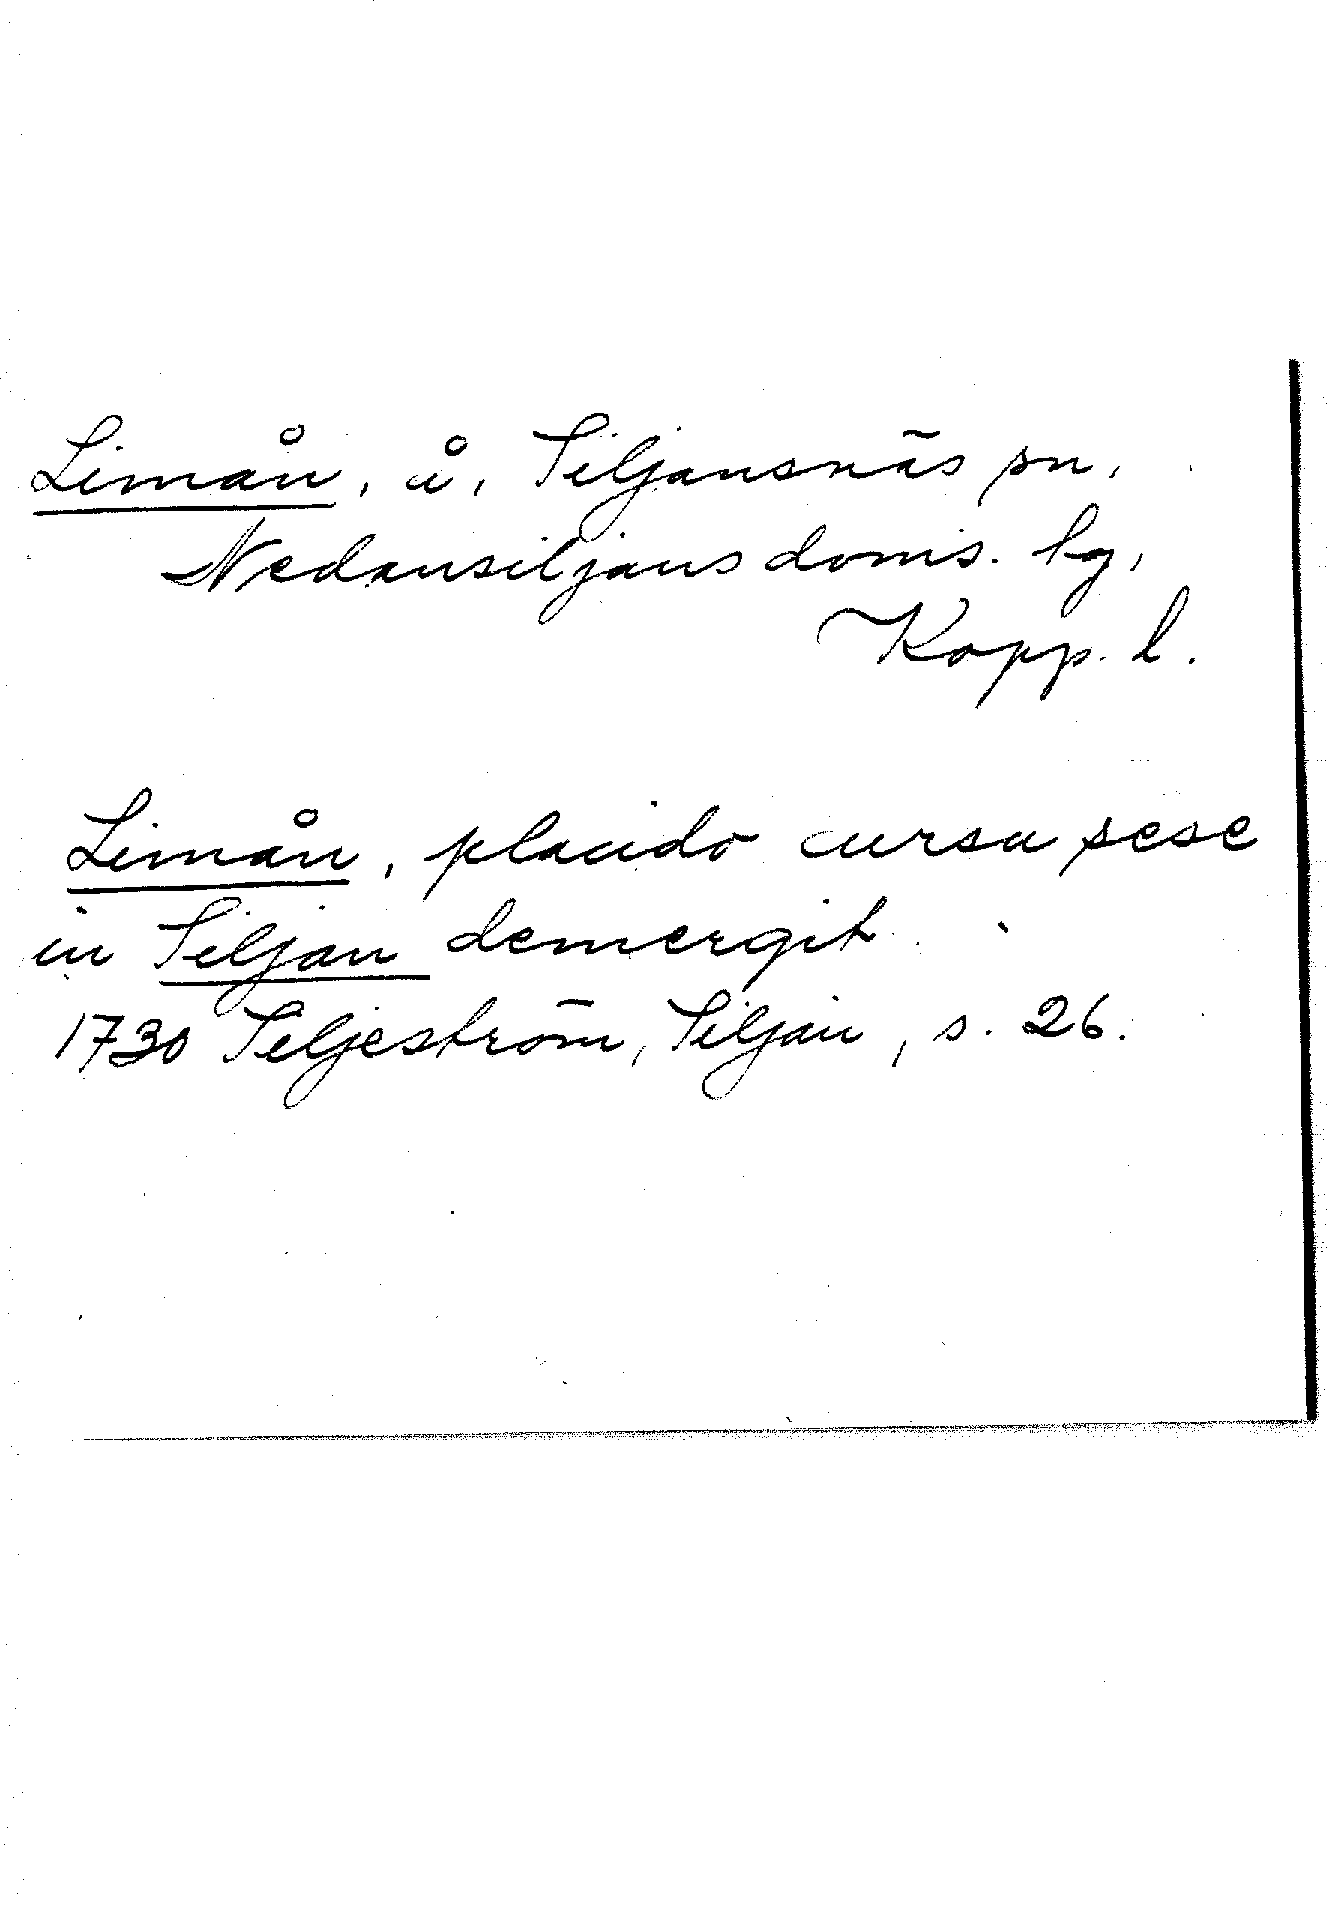 Limån, å, Siljansnäs sn,
Nedansiljans doms. lg,
Kopp. l.
Limån, placido cursu sese
in Siljan demergit
1730 Seljeström, Siljan, s. 26.